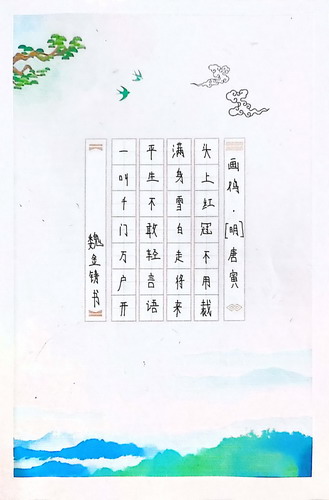 画鸡·[明]唐寅
头上红冠不用裁
满身雪白走得来
平生不敢轻言语
一叫千门万户开
魏金锈书